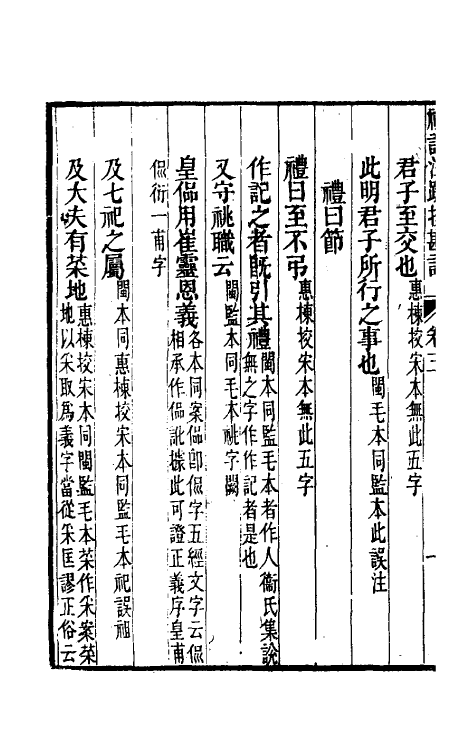 禮記注疏挍勘記 卷三 一
君子至交也 惠棟挍宋本無此五字
此明君子所行之事也 閩毛本同監本此誤注
禮曰節
禮曰至不弔 惠棟挍宋本無此五字
作記之者旣引其禮 閩本同監毛本者作人衞氏集說無之字作作記者是也
又守祧職云 閩監本同毛本祧字闕
皇偘用崔靈恩義 各本同案偘卽侃字五經文字云侃相承作偘訛據此可證正義序皇甫
侃衍一甫字
及七祀之屬 閩本同惠棟挍宋本同監毛本祀誤祖
及大夫有菜地 惠棟挍宋本同閩監毛本菜作采案菜地以采取爲義字當從采匡謬正俗云